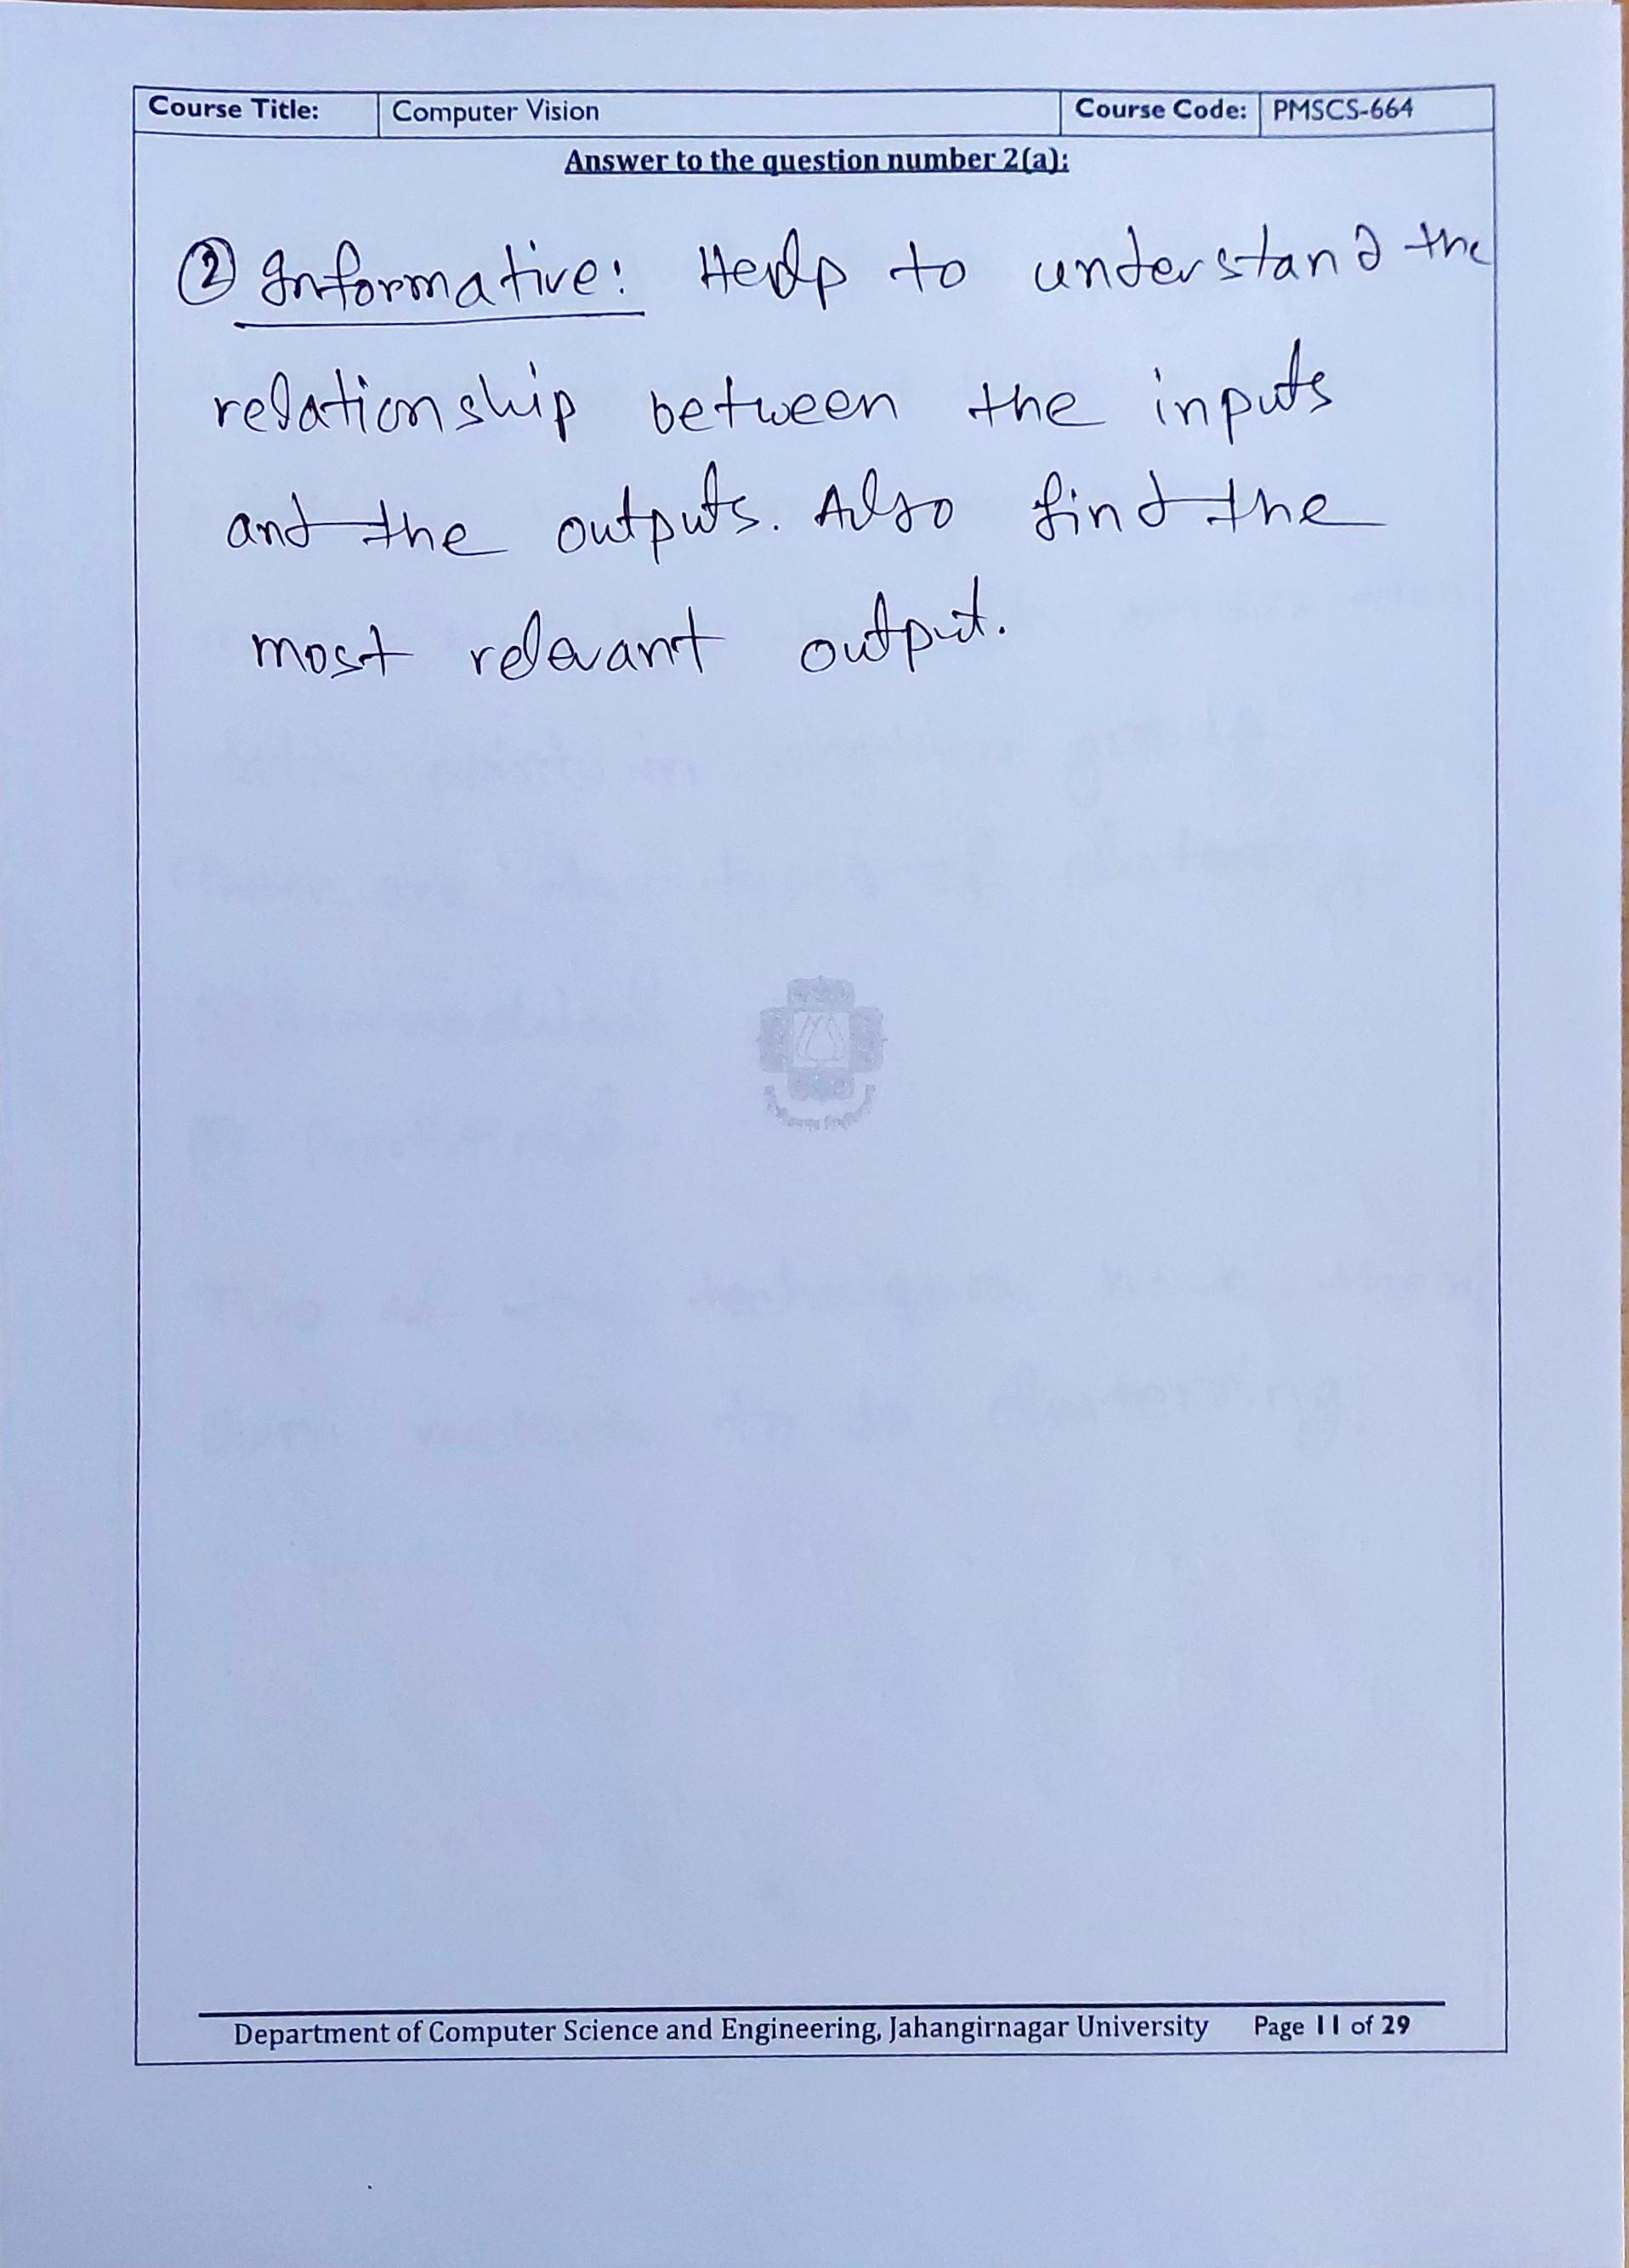 Course Title: Computer Vision Course Code: PMSCS-664
Answer to the question number 2(a):
② Informative: Help to understand the
relationship between the inputs
and the outputs. Also find the
most relevant output.
Department of Computer Science and Engineering, Jahangirnagar University Page 11 of 29